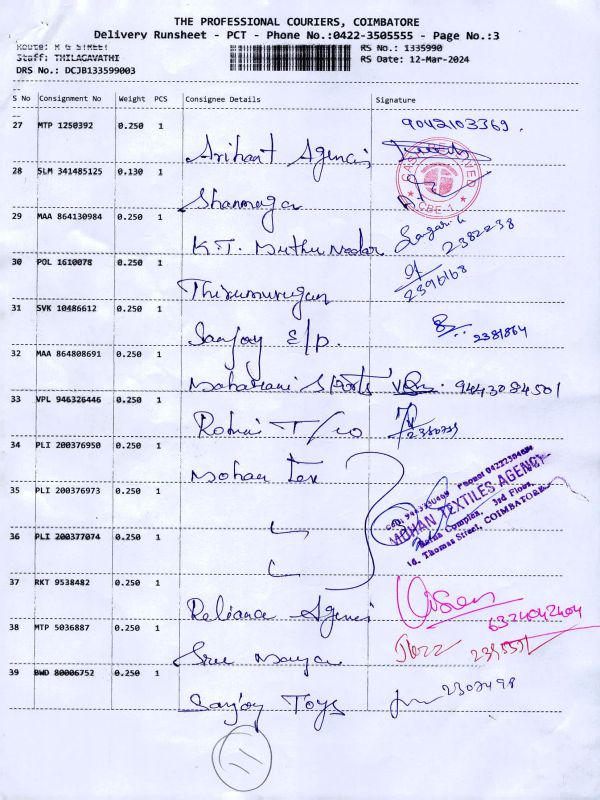 THE PROFESSIONAL COURIERS, COIMBATORE
Delivery Runsheet - PCT - Phone No.:0422-3505555 - Page No.:3
Route: M G STREET
Staff: THILAGAVATHI
DRS No.: DCJB133599003
RS No.: 1335990
RS Date: 12-Mar-2024
S No Consignment No Weight PCS Consignee Details Signature
27 MTP 1250392 0.250 1 9042103369.
Arihant Agencies
28 SLM 341485125 0.130 1
Shanmuga
29 MAA 864130984 0.250 1
K.T. Muthu Nadar 2382238
30 POL 1610078 0.250 1
Thirumurugan
31 SVK 10486612 0.250 1
Sanjoy E/P. 2381864
32 MAA 864808691 0.250 1
Maharani Sports 9443084501
33 VPL 946326446 0.250 1
T/co
34 PLI 200376950 0.250 1
Mohan Tex
35 PLI 200376973 0.250 1
MOHAN TEXTILES AGENCY
Ratna Complex, 3rd Floor,
16, Thomas Street, COIMBATORE
36 PLI 200377074 0.250 1
37 RKT 9538482 0.250 1
Reliance Agencies
38 MTP 5036887 0.250 1
Sree
39 BWD 80006752 0.250 1
Sanjoy Toys
11